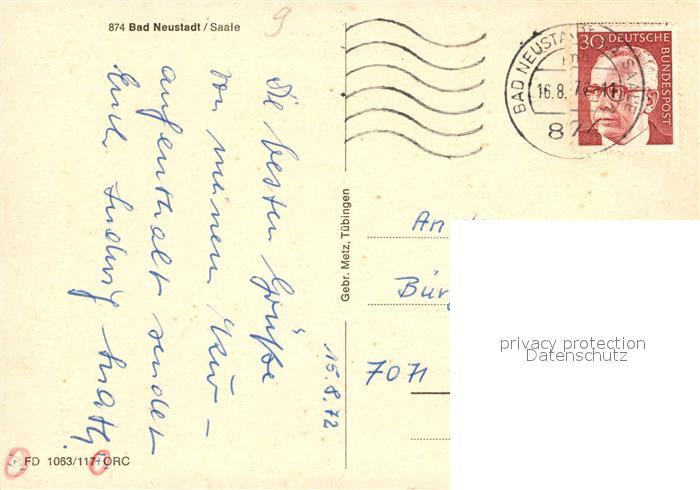 874 Bad Neustadt / Saale
9
Die besten Grüße
von meinem Kur-
aufenthalt sendet
Euch Ludwig
15.8.72
Gebr. Metz, Tübingen
FD 1063/117 ORC
BAD NEUSTADT SAALE
16.8.72-11
874
30 DEUTSCHE
BUNDESPOST
An
Bürg
7071
privacy protection
Datenschutz